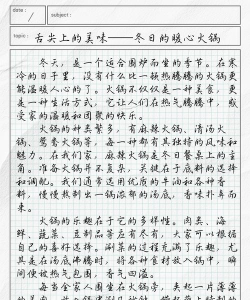 date :
subject :
topic : 舌尖上的美味——冬日的暖心火锅
冬天，是一个适合围炉而坐的季节。在寒
冷的日子里，没有什么比一顿热腾腾的火锅更
能温暖人心的了。火锅不仅仅是一种美食，更
是一种生活方式，它让人们在热气腾腾中，感
受家的温暖和团聚的快乐。
火锅的种类繁多，有麻辣火锅、清汤火
锅、鸳鸯火锅等，每一种都有其独特的风味和
魅力。在我们家，麻辣火锅是冬日餐桌上的主
角。准备火锅并不复杂，关键在于底料的选择
和调配。我们通常选用优质的牛油和各种香
料，慢慢熬制出一锅浓郁的汤底，香味扑鼻而
来。
火锅的乐趣在于它的多样性。肉类、海
鲜、蔬菜、豆制品等应有尽有，大家可以根据
自己的喜好选择。涮菜的过程充满了乐趣，尤
其是在汤底沸腾时，将各种食材放入锅中，瞬
间便被热气包围，香气四溢。
每当全家人围坐在火锅旁，夹起一片薄薄